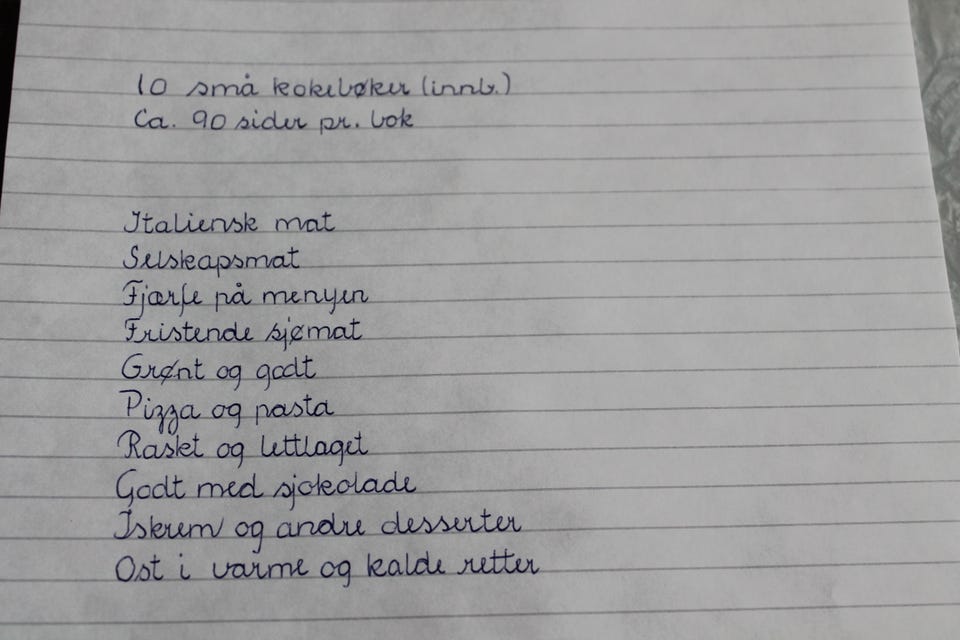 10 små kokebøker (innb.)
Ca. 90 sider pr. bok
Italiensk mat
Selskapsmat
Fjærfe på menyen
Fristende sjømat
Grønt og godt
Pizza og pasta
Raskt og lettlaget
Godt med sjokolade
Iskrem og andre desserter
Ost i varme og kalde retter